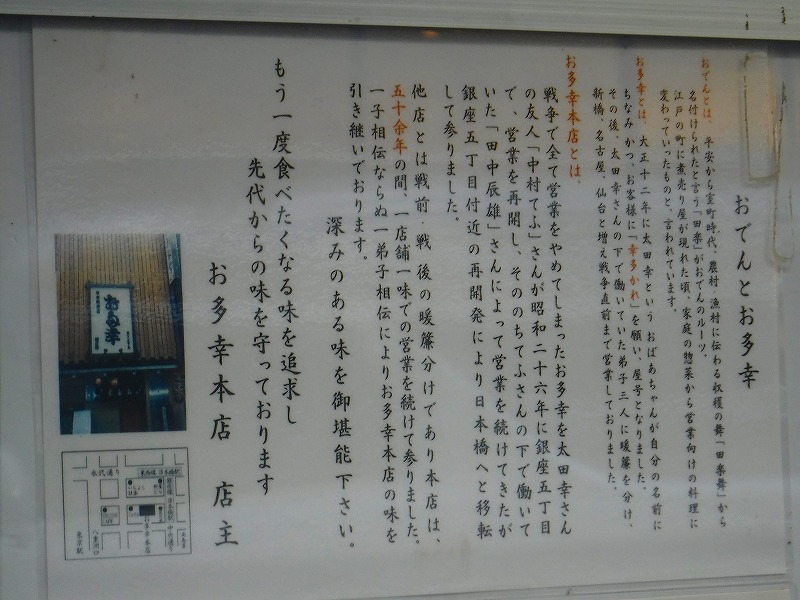 おでんとお多幸
おでんとは、平安から室町時代、農村・漁村に伝わる収穫の舞「田楽舞」から
名付けられたと言う「田楽」がおでんのルーツ。
江戸の町に煮売り屋が現れた頃、家庭の惣菜から営業向けの料理に
変わっていったものと、言われています。
お多幸とは、大正十二年に太田幸という おばあちゃんが自分の名前に
ちなみ かつ、お客様に「幸多かれ」を願い、屋号となりました。
その後、太田幸さんの下で働いていた弟子三人に暖簾を分け、
新橋、名古屋、仙台と増え戦争直前まで営業しておりました。
お多幸本店とは、
戦争で全て営業をやめてしまったお多幸を太田幸さん
の友人「中村てふ」さんが昭和二十六年に銀座五丁目
で、営業を再開し、そののちてふさんの下で働いて
いた「田中辰雄」さんによって営業を続けてきたが
銀座五丁目付近の再開発により日本橋へと移転
して参りました。
他店とは戦前・戦後の暖簾分けであり本店は、
五十余年の間、一店舗一味での営業を続けて参りました。
一子相伝ならぬ一弟子相伝によりお多幸本店の味を
引き継いでおります。
深みのある味を御堪能下さい。
もう一度食べたくなる味を追求し
先代からの味を守っております
お多幸本店 店主
お多幸
永代通り
東西線 日本橋駅
銀座線 日本橋駅
中央通り
お多幸本店
八重洲口
東京駅